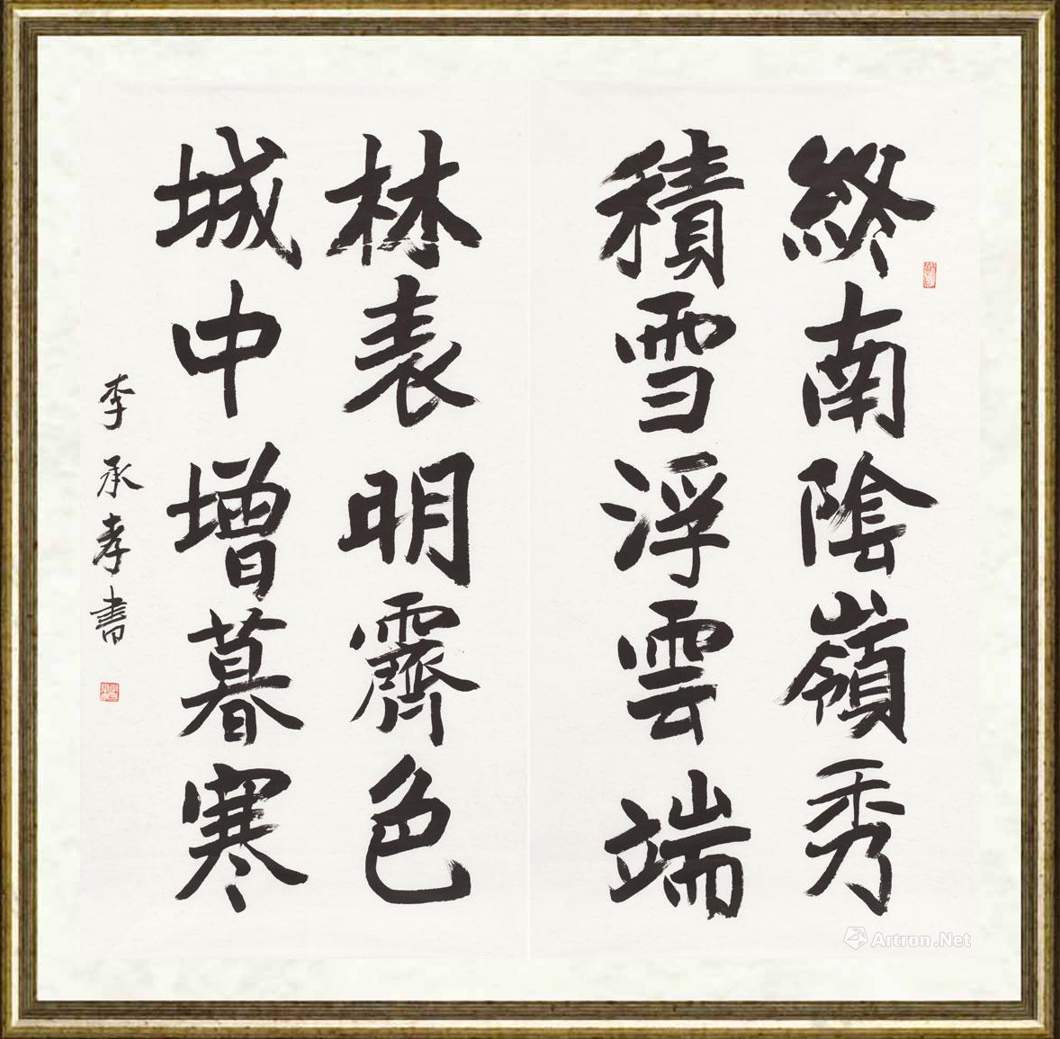 終南陰嶺秀
積雪浮雲端
林表明霽色
城中增暮寒
李承孝書
Artron.Net